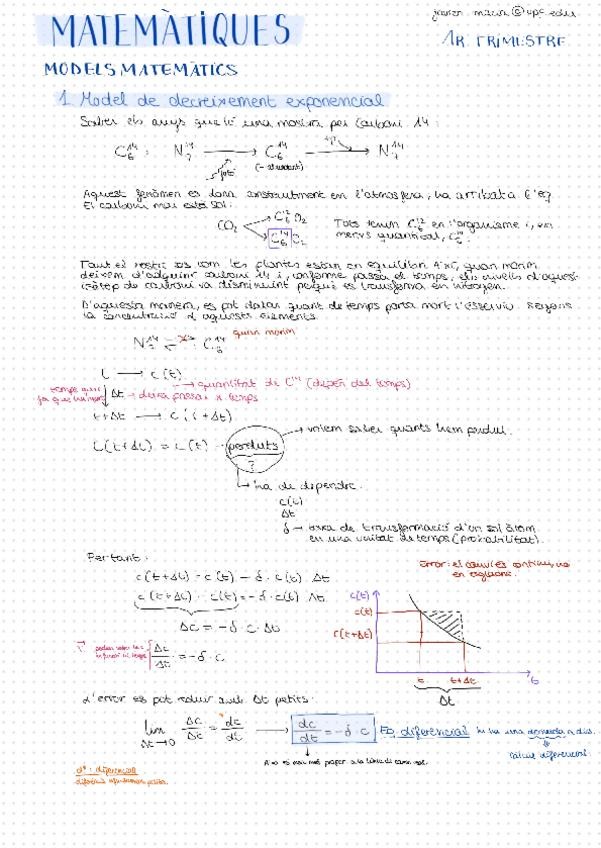 MATEMÀTIQUES
1R TRIMESTRE
MODELS MATEMÀTICS
1. Model de decreixement exponencial
Saber els anys que té una mostra per carboni 14:
C₆¹⁴ : N₇¹⁴ → C₆¹⁴ → N₇¹⁴
Aquest fenòmen es dona constantment en l'atmosfera, ha arribat a l'eq.
El carboni mai està sol:
CO₂
C₆¹²O₂
C₆¹⁴O₂
Tots tenim C₆¹² en l'organisme i, en
menys quantitat, C₆¹⁴
quan morim,
deixem d'adquirir carboni 14 i, conforme passa el temps, els nivells d'aquest
isòtop de carboni va disminuint perquè es transforma en nitrogen.
D'aquesta manera, es pot datar quant de temps porta mort l'ésser viu segons
la concentració d'aquests elements.
quan morim
t → c(t)
→ quantitat de C¹⁴ (depèn del temps)
Δt → deixa passar x temps
t+Δt → c(t+Δt)
c(t+Δt) = c(t) - perduts
?
→ volem saber quants hem perdut.
ha de dependre:
c(t)
Δt
δ → taxa de transformació d'un sol àtom
en una unitat de temps (probabilitat).
Per tant:
c(t+Δt) = c(t) - δ · c(t) · Δt
c(t+Δt) - c(t) = -δ · c(t) · Δt
Δc = -δ · c · Δt
Δc/Δt = -δ · c
Error: el canvi és continu, no
en esglaons.
c(t)
c(t)
c(t+Δt)
t
t+Δt
t
Δt
L'error es pot reduir amb Δt petits:
lim Δt→0 Δc/Δt = dc/dt → dc/dt = -δ · c
EQ. diferencial
càlcul diferencial
d* : diferencial